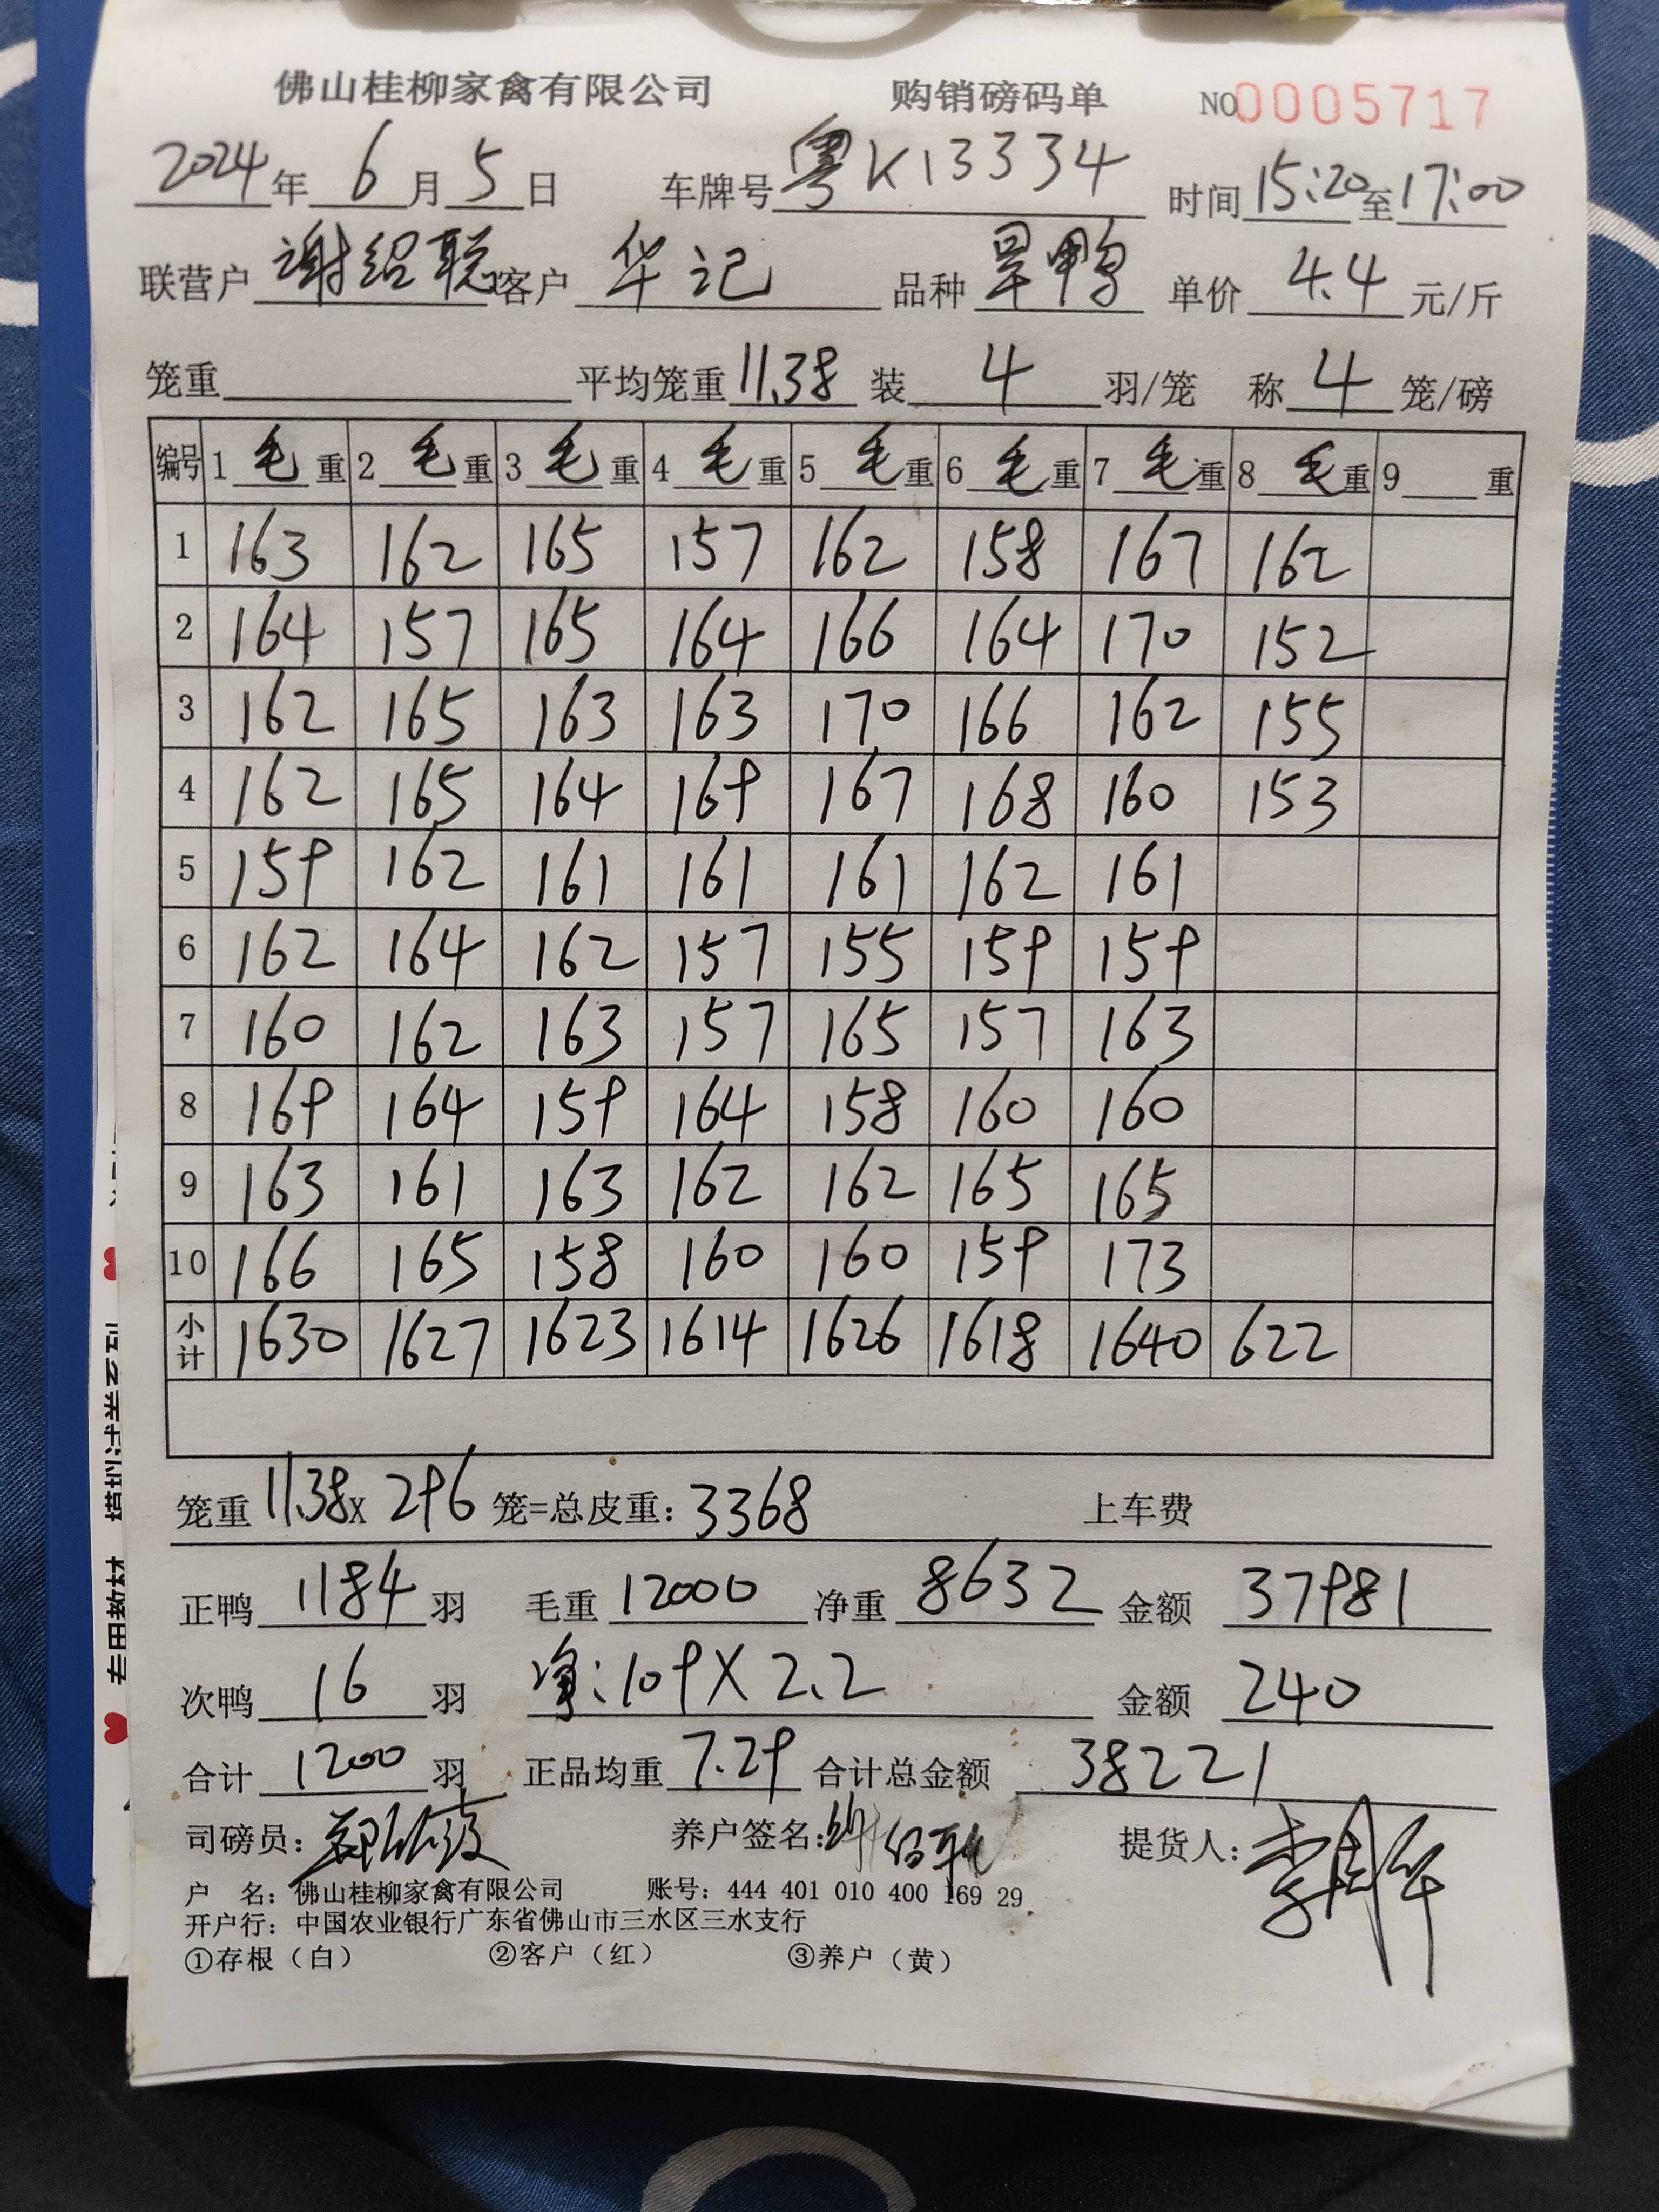 佛山桂柳家禽有限公司 购销磅码单 NO 0005717
2024年 6月 5日 车牌号 粤K13334 时间 15:20 至 17:00
联营户 谢绍聪 客户 华记 品种 旱鸭 单价 4.4 元/斤
笼重 平均笼重 11.38 装 4 羽/笼 称 4 笼/磅
编号 1 毛 重 2 毛 重 3 毛 重 4 毛 重 5 毛 重 6 毛 重 7 毛 重 8 毛 重 9 重
1 163 162 165 157 162 158 167 162
2 164 157 165 164 166 164 170 152
3 162 165 163 163 170 166 162 155
4 162 165 164 169 167 168 160 153
5 159 162 161 161 161 162 161
6 162 164 162 157 155 159 159
7 160 162 163 157 165 157 163
8 169 164 159 164 158 160 160
9 163 161 163 162 162 165 165
10 166 165 158 160 160 159 173
小计 1630 1627 1623 1614 1626 1618 1640 622
笼重 11.38 x 296 笼=总皮重: 3368 上车费
正鸭 1184 羽 毛重 12000 净重 8632 金额 37981
次鸭 16 羽 净:109X2.2 金额 240
合计 1200 羽 正品均重 7.29 合计总金额 38221
司磅员: 养户签名: 提货人:
户 名: 佛山桂柳家禽有限公司 账号: 444 401 010 400 169 29
开户行: 中国农业银行广东省佛山市三水区三水支行
①存根（白） ②客户（红） ③养户（黄）